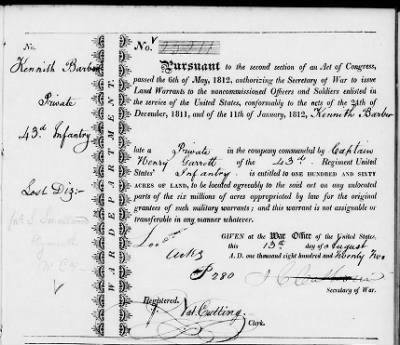 No.
Kennith Barber
Private
43d. Infantry
Lost Dis:-
WAR DEPARTMENT.
No.
Pursuant to the second section of an Act of Congress,
passed the 6th of May, 1812, authorizing the Secretary of War to issue
Land Warrants to the noncommissioned Officers and Soldiers enlisted in
the service of the United States, conformably to the acts of the 24th of
December, 1811, and of the 11th of January, 1812, Kennith Barber
late a Private in the company commanded by Captain
Henry Garrett of the 43d. Regiment United
States' Infantry is entitled to ONE HUNDRED AND SIXTY
ACRES OF LAND, to be located agreeably to the said act on any unlocated
parts of the six millions of acres appropriated by law for the original
grantees of such military warrants; and this warrant is not assignable or
transferable in any manner whatever.
GIVEN at the War Office of the United States,
this 13th day of August
A. D. one thousand eight hundred and Twenty Two
280
J C Calhoun
Secretary of War.
Registered.
Nat. Cutting
Clerk.